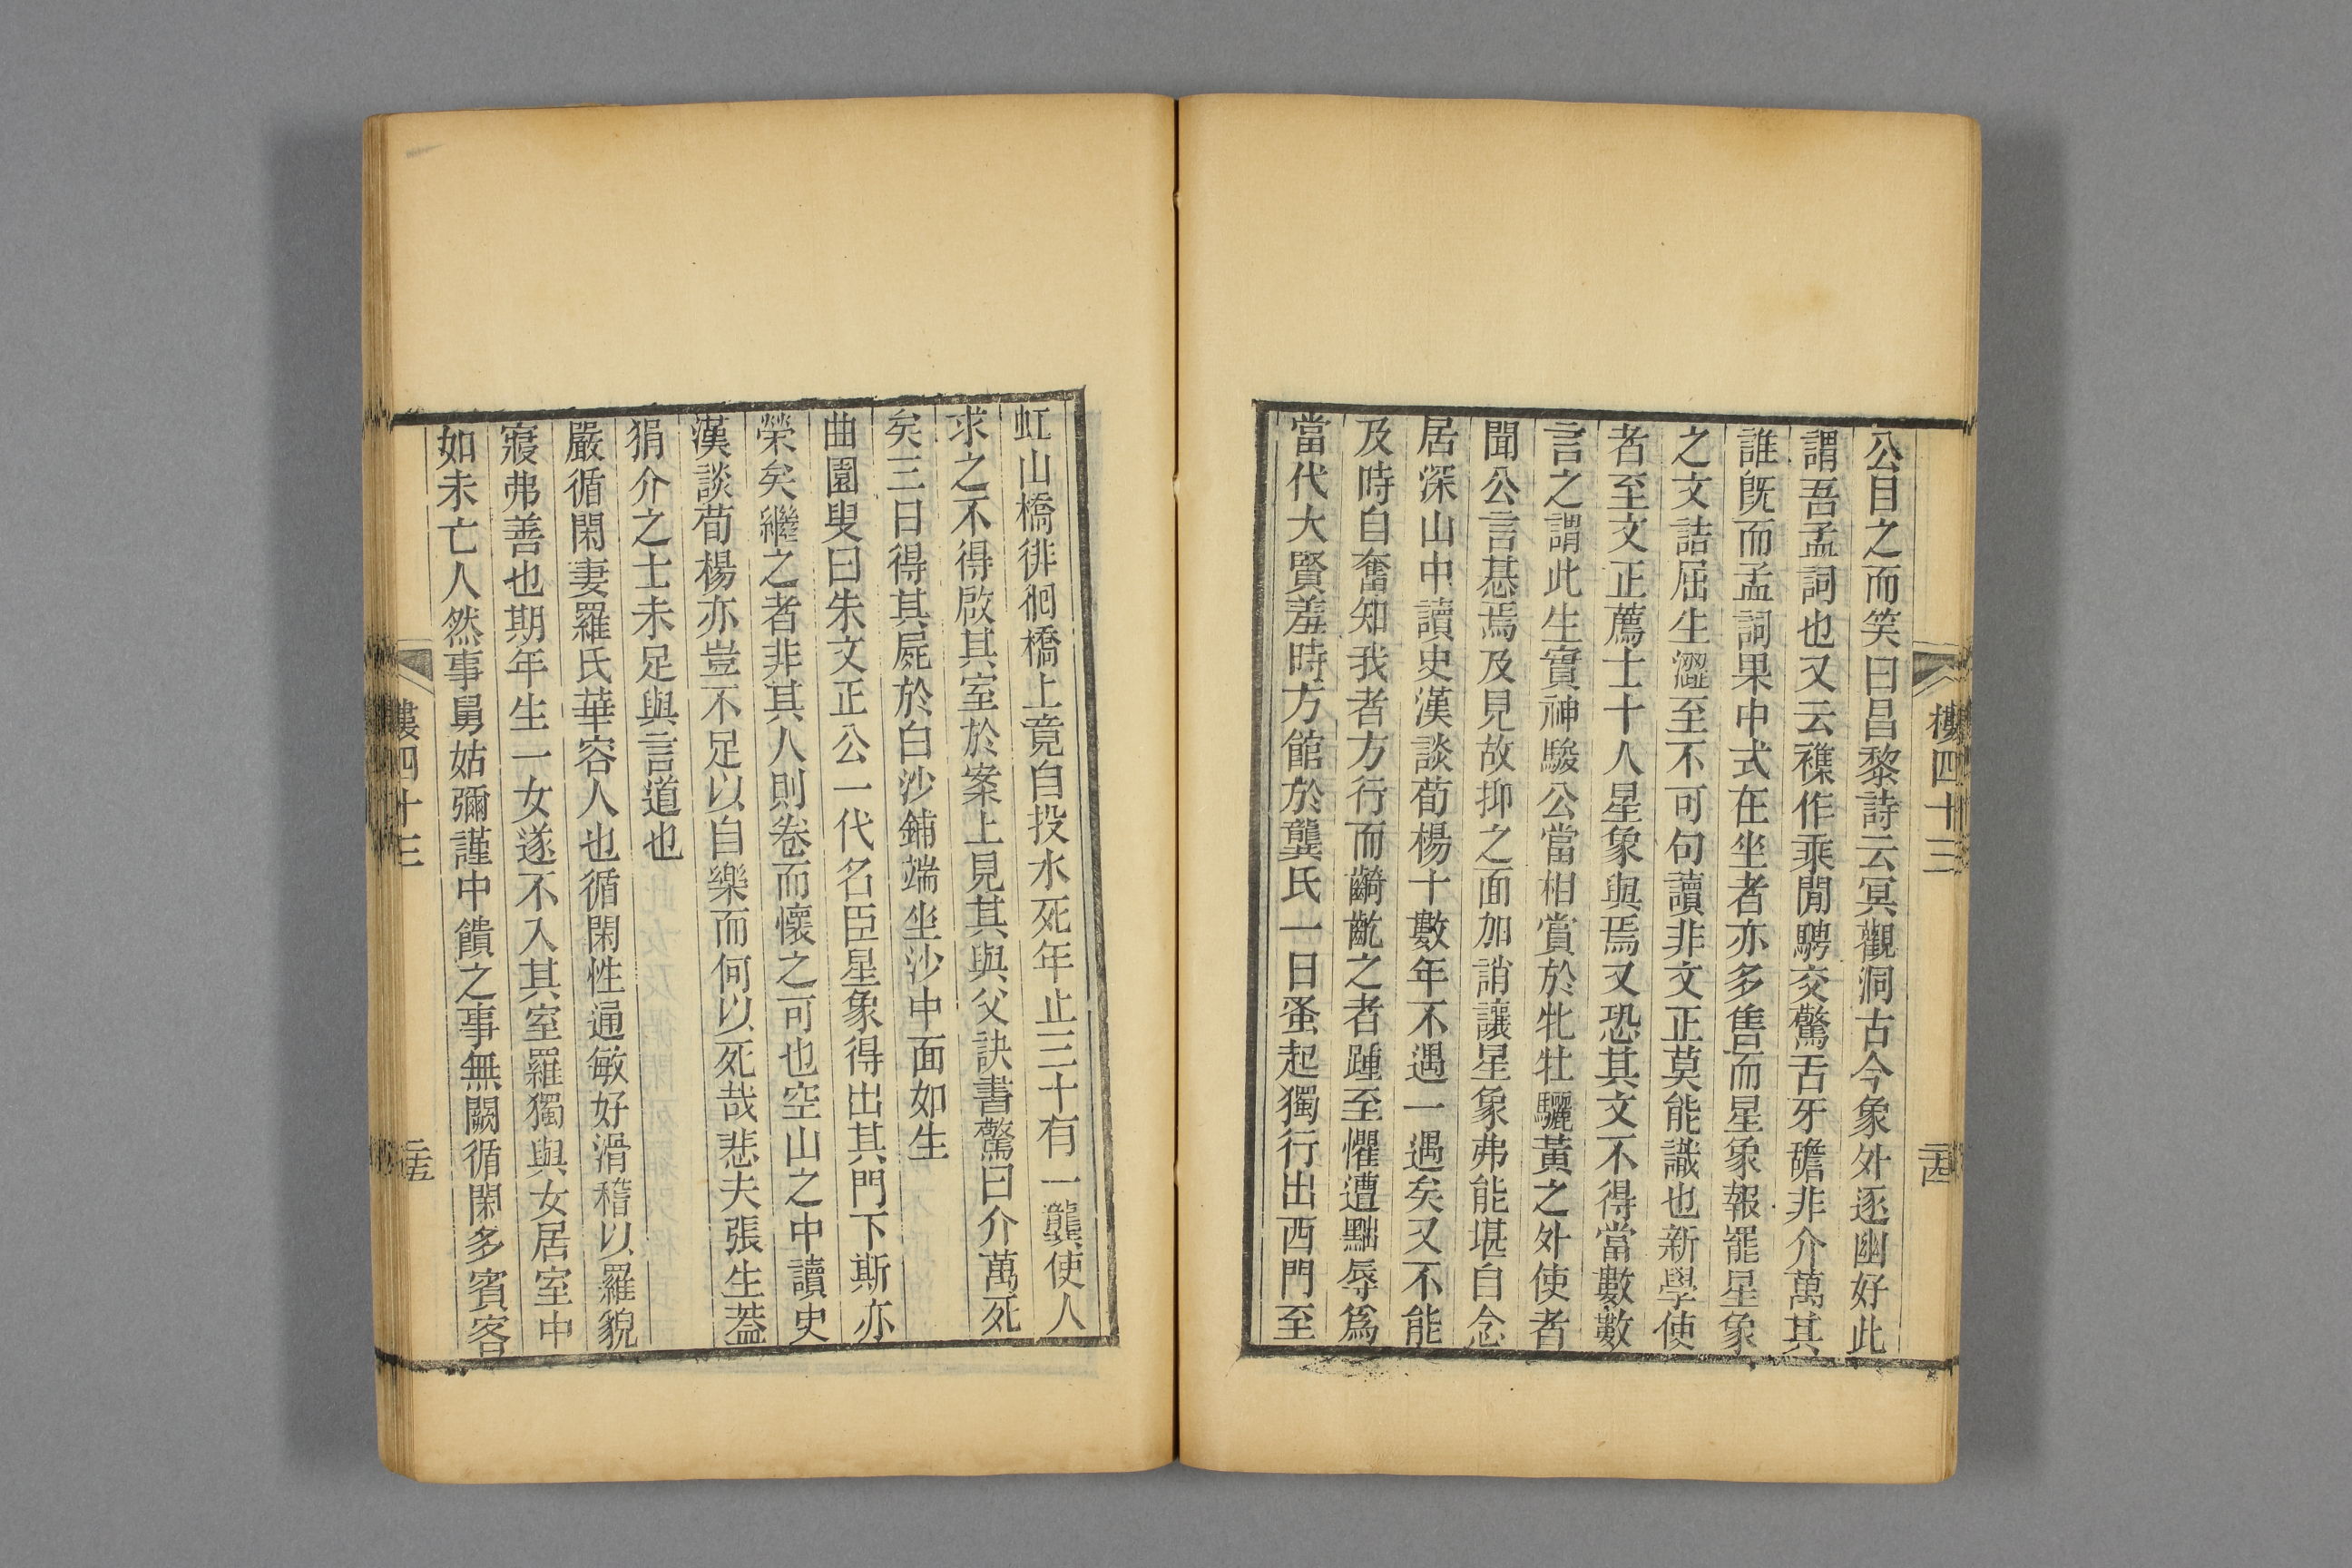 樓四十三
二十四
公目之而笑曰昌黎詩云冥觀洞古今象外逐幽好此
謂吾孟詞也又云襍作乘閒騁交驚舌牙礚非介萬其
誰旣而孟詞果中式在坐者亦多售而星象報罷星象
之文詰屈生澀至不可句讀非文正莫能識也新學使
者至文正薦士十人星象與焉又恐其文不得當數數
言之謂此生實神駿公當相賞於牝牡驪黃之外使者
聞公言惎焉及見故抑之面加誚讓星象弗能堪自念
居深山中讀史漢談荀楊十數年不遇一遇矣又不能
及時自奮知我者方行而齮齕之者踵至懼遭黜辱爲
當代大賢羞時方館於龔氏一日蚤起獨行出西門至
虹山橋徘徊橋上竟自投水死年止三十有一龔使人
求之不得啟其室於案上見其與父訣書驚曰介萬死
矣三日得其屍於白沙鋪端坐沙中面如生
曲園叟曰朱文正公一代名臣星象得出其門下斯亦
榮矣繼之者非其人則卷而懷之可也空山之中讀史
漢談荀楊亦豈不足以自樂而何以死哉悲夫張生蓋
狷介之士未足與言道也
嚴循閑妻羅氏華容人也循閑性通敏好滑稽以羅貌
寢弗善也期年生一女遂不入其室羅獨與女居室中
如未亡人然事舅姑彌謹中饋之事無闕循閑多賓客
樓四十三
二十五